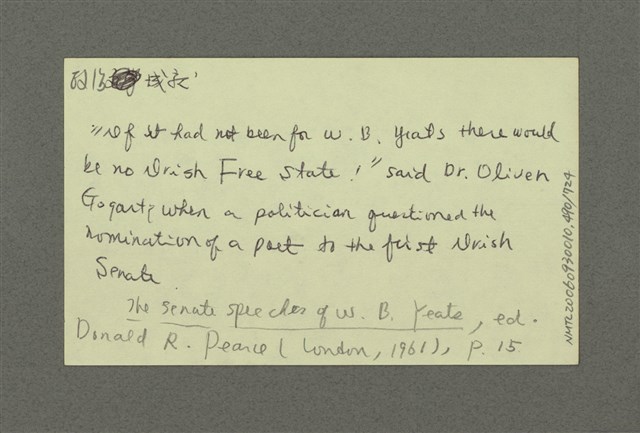 "If it had not been for W. B. Yeats there would
be no Irish Free State!" said Dr. Oliver
Gogarty when a politician questioned the
nomination of a poet to the first Irish
Senate
The senate speeches of W. B. Yeats, ed.
Donald R. Pearce (London, 1961), P. 15
NMTL20060930010,490/724